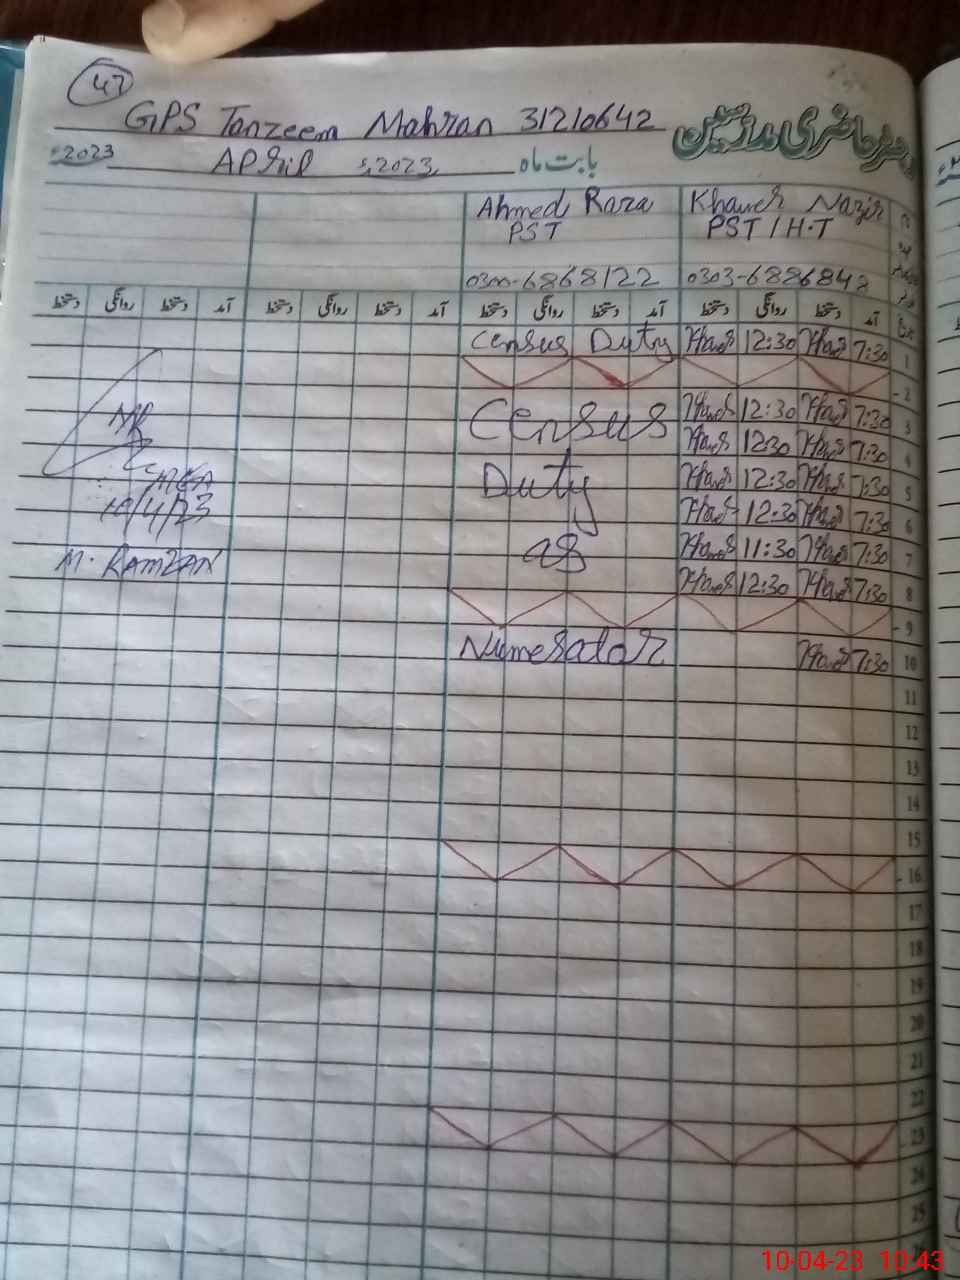 47
GPS Tanzeem Mahran 31210642
حاضری مدرسین
2023 April 2023 بابت ماہ
Ahmed Raza Khawer Nazir
PST PST / H.T
0300-6868122 0303-6886848
دستخط روانگی دستخط آمد دستخط روانگی دستخط آمد دستخط روانگی دستخط آمد دستخط روانگی دستخط آمد
Census Duty 12:30 7:30 1
2
Census 12:30 7:30 3
12:30 7:30 4
Duty 12:30 7:30 5
12:30 7:30 6
as 11:30 7:30 7
12:30 7:30 8
9
Numerator 7:30 10
11
12
13
14
15
16
17
18
19
20
21
22
23
24
25
AEO
10/4/23
M. RAMZAN
10-04-23 10:43